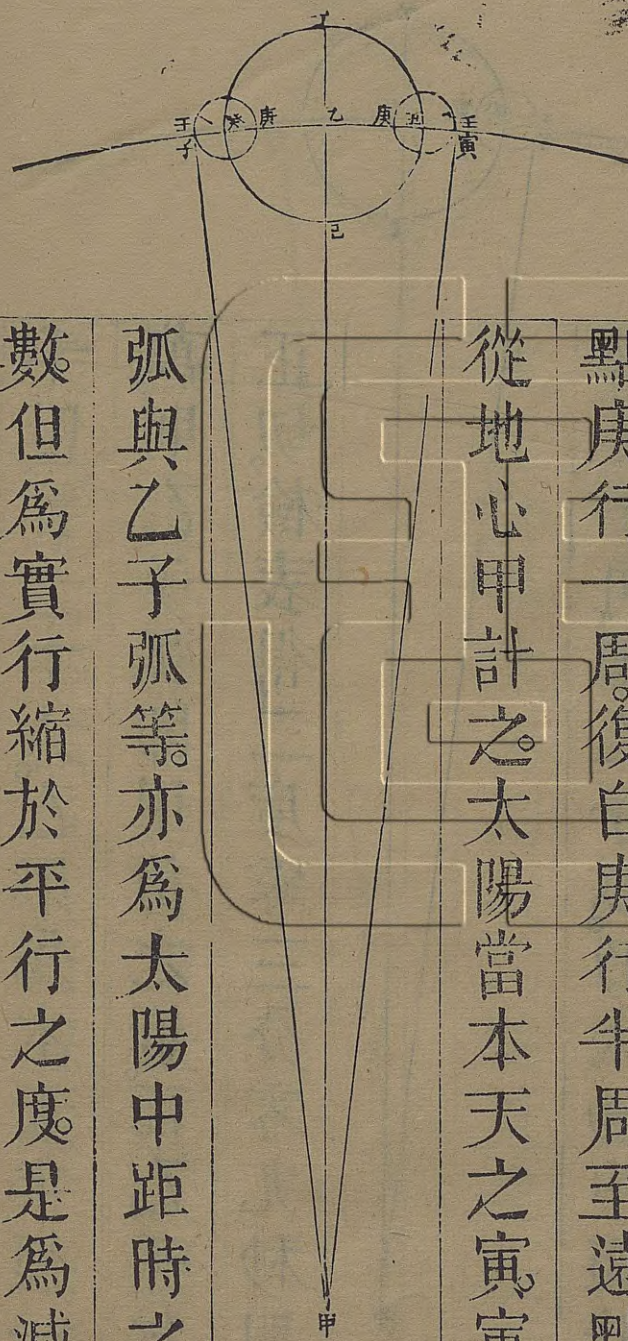 丁
壬
寅
丑
庚
乙
庚
癸
壬
子
己
甲
點庚行一周。復自庚行半周至遠點
從地心甲計之。太陽當本天之寅。寅
弧與乙子弧等。亦爲太陽中距時之
數。但爲實行縮於平行之度。是爲減